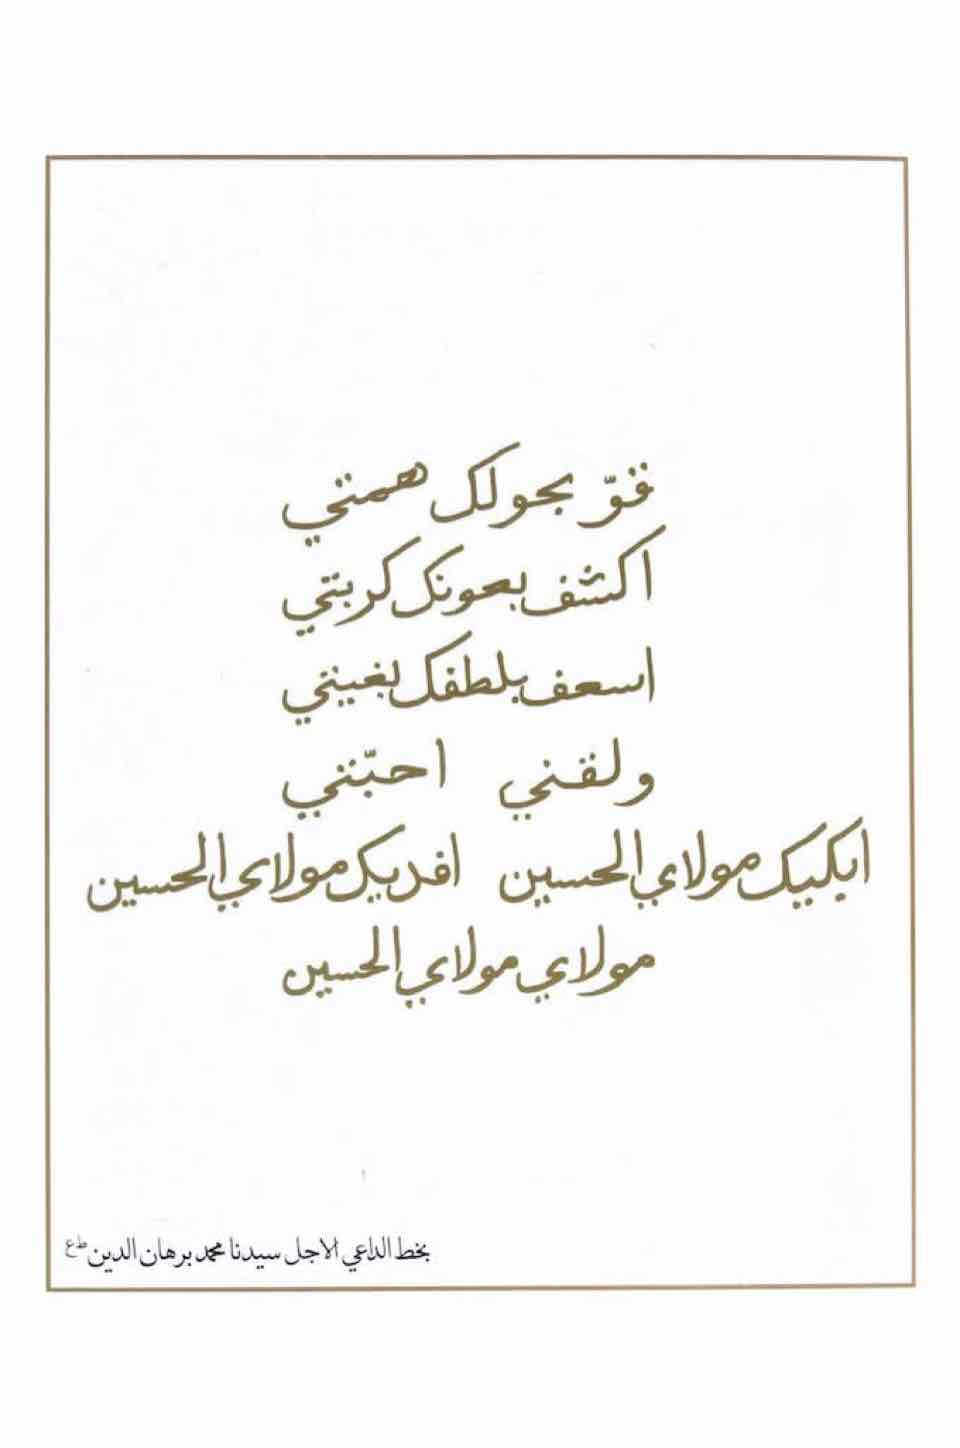 قوّ بحولك همتي
اكشف بعونك كربتي
اسعف بلطفك بغيتي
ولقني احبّتي
ابكيك مولاي الحسين افديك مولاي الحسين
مولاي مولاي الحسين
بخط الداعي الاجل سيدنا محمد برهان الدين ط ع